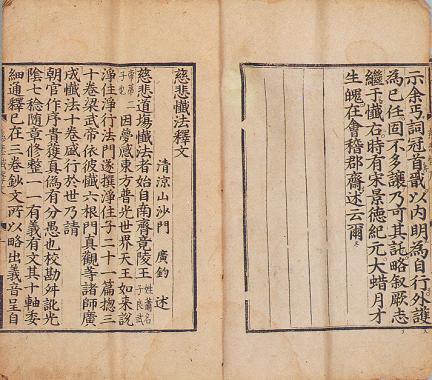 示余丐詞冠首以内明為自行外護
為己任固不多讓乃可其託略叙厥志
繼于懺右時有宋景德紀元大蜡月才
生魄在會稽郡齋述云爾
慈悲懺法釋文
清涼山沙門 廣鈞 述
慈悲道場懺法者始自南齊竟陵王姓蕭名子良武
帝第二子也因夢感東方普光世界天王如來說
淨住淨行法門遂撰淨住子二十一篇摠三
十卷梁武帝依彼懺六根門真觀等諸師廣
成懺法十卷盛行於世乃請
朝官作序貴獲真偽有分愚也校勘舛訛光
陰七稔随章修整一一有義有文其十軸委
細通釋已在三卷鈔文所以略出義音呈自